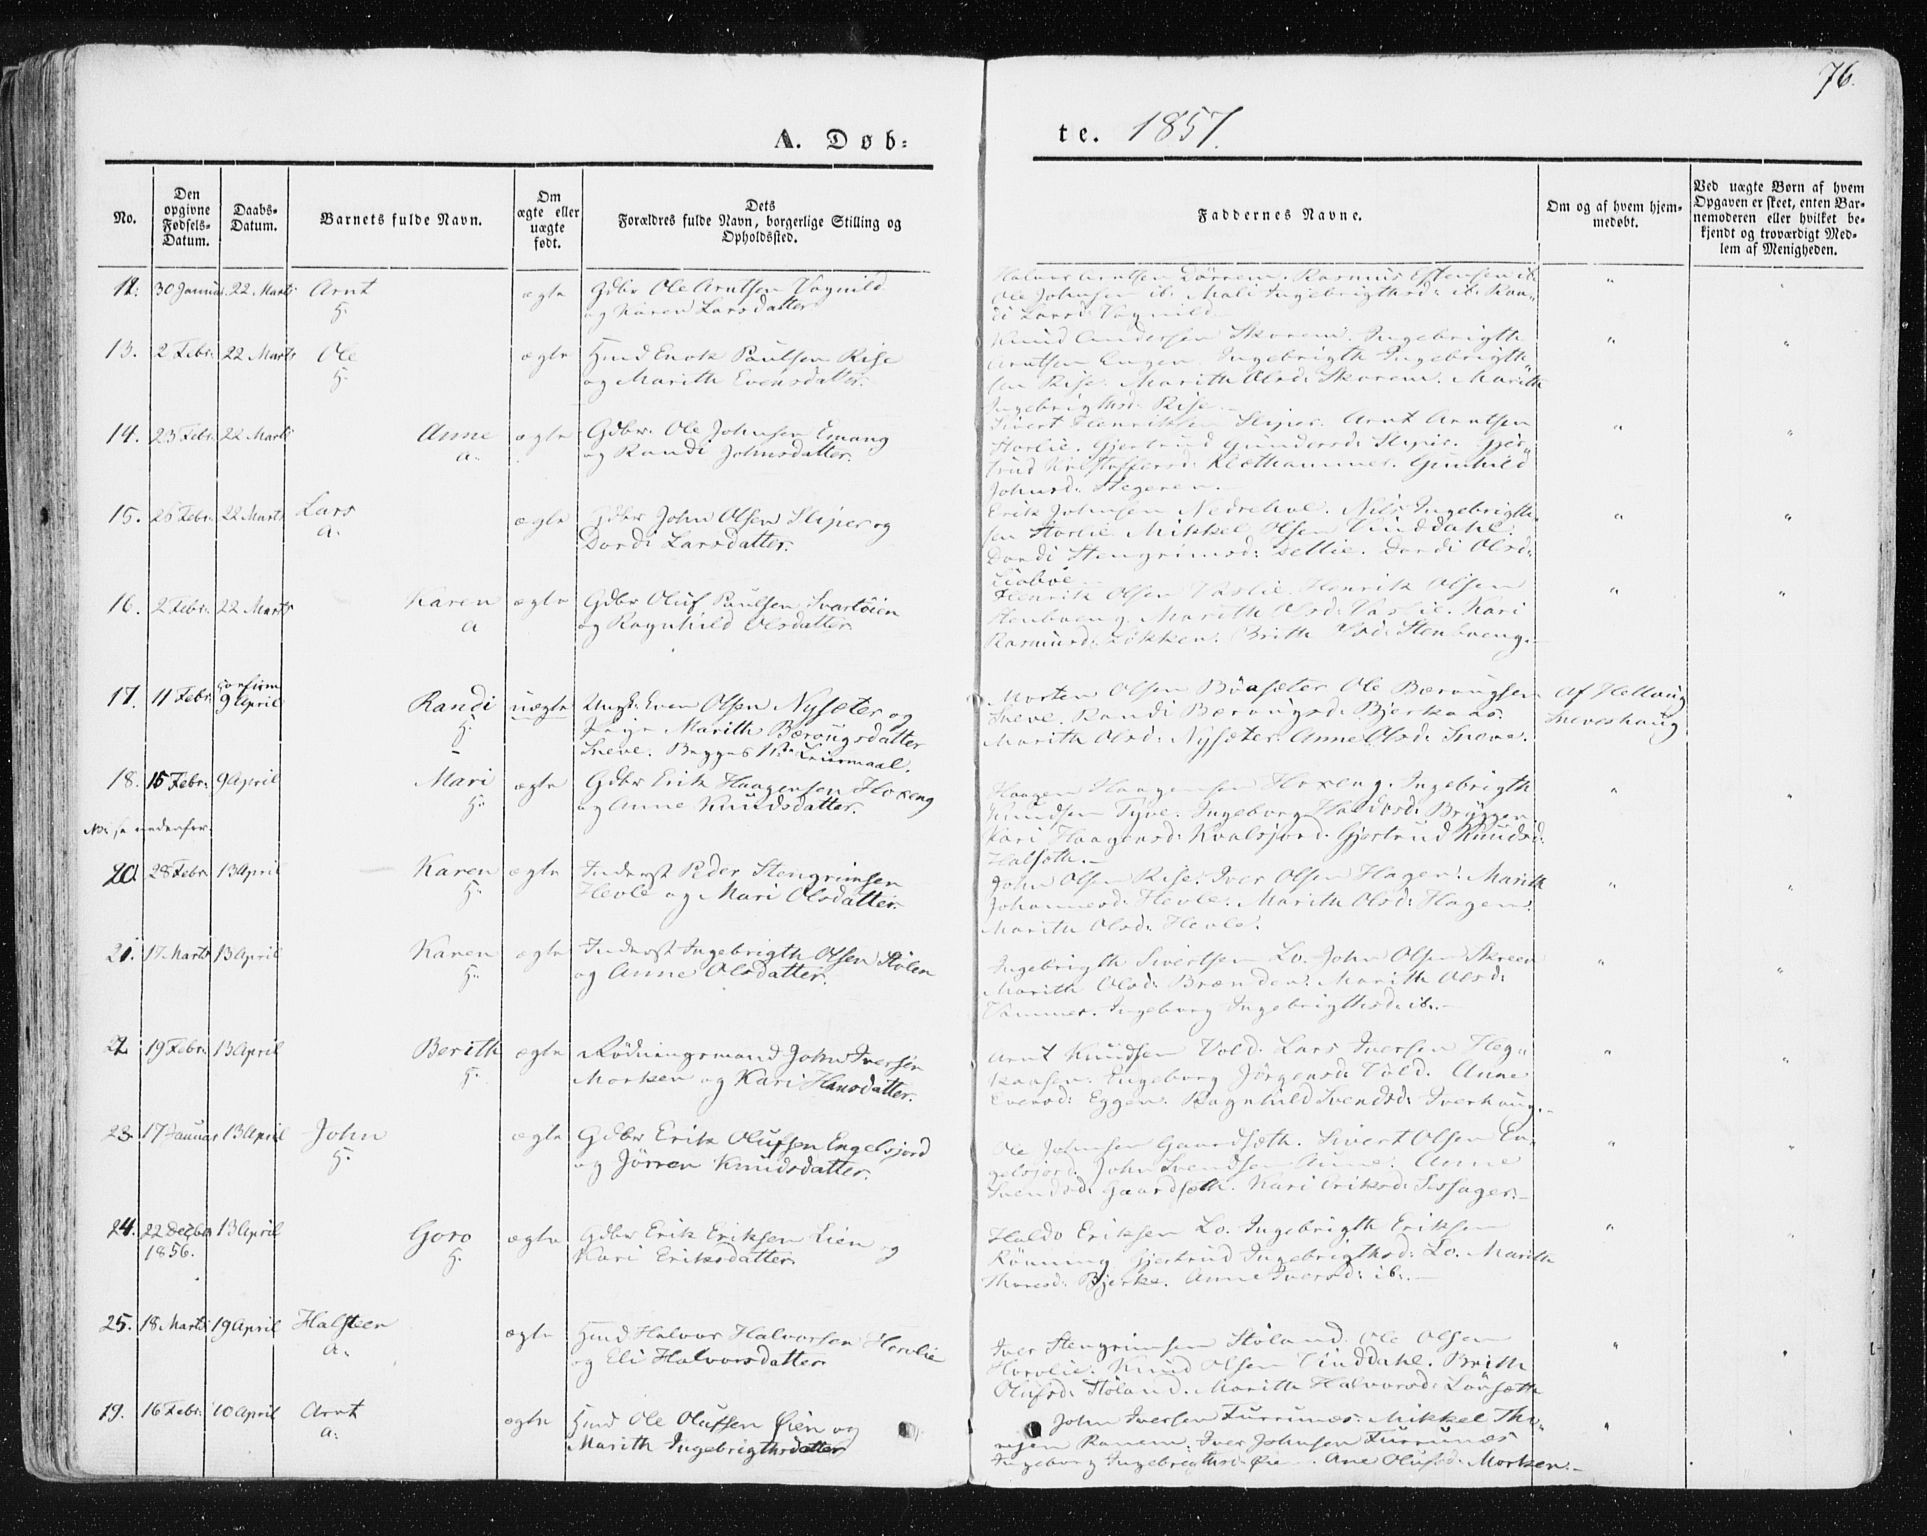 76.
A. Døb:
te. 1857.
No.
Den opgivne Fødsels-Datum.
Daabs-Datum.
Barnets fulde Navn.
Om ægte eller uægte født.
Dets Forældres fulde Navn, borgerlige Stilling og Opholdssted.
Faddernes Navne.
Om og af hvem hjem-medøbt.
Ved uægte Børn af hvem Opgaven er skeet, enten Bar-nemoderen eller hvilket be-kjendt og troværdigt Med-lem af Menigheden.
30 Januar 22 Marts Arnt ægte Gdbr Ole Arntsen Vognild
H. og Karen Larsdatter
Halvor Arntsen Rasmus Estensen ib.
Ole Johnsen ib. Mali Ingebrigthsd: ib. Ran-
di Larsd: Vognild
13. 2 Febr. 22 Marts Ole ægte Hmd Enok Paulsen Rise
H. og Marith Evensdatter.
Knud Andersen Skorem. Ingebrigth
Arntsen Engen. Ingebrigth Ingebrigth-
sen Rise. Marith Olsd: Skorem. Marith
Ingebrigthsd: Rise.
14. 23 Febr. 22 Marts Anne ægte Gdbr. Ole Johnsen Emaug
A. og Randi Johnsdatter.
Sivert Henriksen Sliper. Arnt Arntsen
Storlie. Gjertrud Gundersd: Sliper. Gjer-
trud Kristoffersd: Klethammer. Gunhild
Johnsd: Stegeren.
15. 26 Febr. 22 Marts Lars ægte Gdbr John Olsen Sliper og
A. Dordi Larsdatter.
Erik Johnsen Nedrehol. Nils Ingebrigth-
sen Storlie Mikkel Olsen Vinddahl.
Dordi Stengrimsd: Dordi Olsd:
16. 2 Febr. 22 Marts Karen ægte Gdbr Oluf Paulsen Svartøien
A og Ragnhild Olsdatter
Henrik Olsen Vaslie. Henrik Olsen
Stenboeng. Marith Olsd: Vaslie. Kari
Rasmusd: Løkken. Brith Olsd: Stenboeng.
17. 11 Febr. confirm 9 April Randi uægte Ungk: Even Olsen Nyseter og
H. Pige Marith Bærøugsdatter
Sneve. Begges 1ste Leiermaal.
Morten Olsen Bøasæter Ole Bærøugsen
Sneve. Randi Bærøugsd: Bjerkaas.
Marith Olsd: Nysæter. Anne Olsd: Sneve.
Af Hellaug
Sneveshaug
18. 15 Febr. 9 April Mari ægte Gdbr Erik Haagensen Hoxeng
H. og Anne Knudsdatter.
Haagen Haagensen Hoxeng. Ingebrigth
Knudsen Tyve. Ingeborg Haldosd: Brøggen.
Kari Haagensd: Kvalsjord. Gjertrud Knudsd:
Halseth.
NB: se nedenfor.
20. 28 Febr. 13 April Karen ægte Inderst Peder Stengrimsen
H. Hevle og Mari Olsdatter.
John Olsen Rise. Iver Olsen Hagen. Marith
Johannesd: Hevle. Marith Olsd: Hagen.
Marith Olsd: Hevle.
21. 17 Marts 13 April Karen ægte Inderst Ingebrigth Olsen Stølen
H. og Anne Olsdatter.
Ingebrigth Sivertsen Lo. John Olsen Skreen
Marith Olsd: Brænden. Marith Olsd:
Vammer. Ingeborg Ingebrigthsd: ib.
22 19 Febr. 13 April Berith ægte Rødningsmand John Iversen
H. Morken og Kari Hansdatter.
Arnt Knudsen Vold. Lars Iversen Heg-
kaasen. Ingeborg Jørgensd: Vold. Anne
Iversd: Eggen. Ragnhild Svendsd: Iverhaug.
23 17 Januar 13 April John ægte Gdbr Erik Olufsen Engelsjord
H. og Jørren Knudsdatter.
Ole Johnsen Gaardseth. Sivert Olsen En-
gelsjord. John Svendsen Aune. Anne
Svendsd: Gaardseth. Kari Eriksd:
24. 22 Decbr 13 April Goro ægte Gdbr Erik Eriksen Lien og
1856. H. Kari Eriksdatter.
Haldo Eriksen Lo. Ingebrigth Eriksen
Rønning Gjertrud Ingebrigthsd: Lo. Marith
Thoresd: Bjerke. Anne Iversd: ib.
25. 18 Marts 19 April Halsteen ægte Hmd Halvor Halvorsen Horvlie
A. og Eli Halvorsdatter
Iver Stengrimsen Støland. Ole Olsen
Horvlie. Knud Olsen Vinddahl. Brith
Olufsd: Støland. Marith Halvorsd: Løvseth
19. 16 Febr. 10 April Arnt ægte Hmd Ole Olufsen Øien og
A. Marith Ingebrigthsdatter
John Iversen Furrunæs. Mikkel Tho-
Ranem. Iver Johnsen Furrunæs
Ingeborg Ingebrigthsd: Øien. Ane Olufsd: Morken.